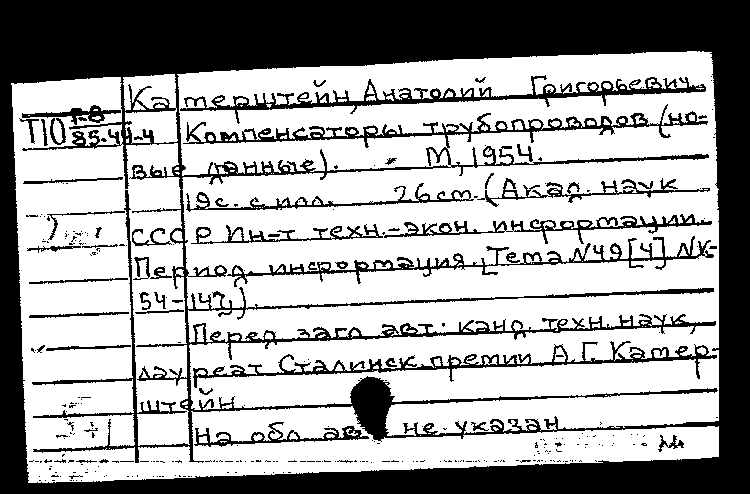 Катерштейн, Анатолий Григорьевич.
Г-8
П10 85.44-4 Компенсаторы трубопроводов (но-
вые данные). - М, 1954.
19с. с илл. 26 cm. (Акад. наук
СССР Ин-т техн.-экон. информации.
Период. информация. Тема N49[4] NИ-
54-147).
Перед загл авт: канд. техн. наук,
лауреат Сталинск. премии А.Г. Катер-
штейн
На обл не указан
5+1